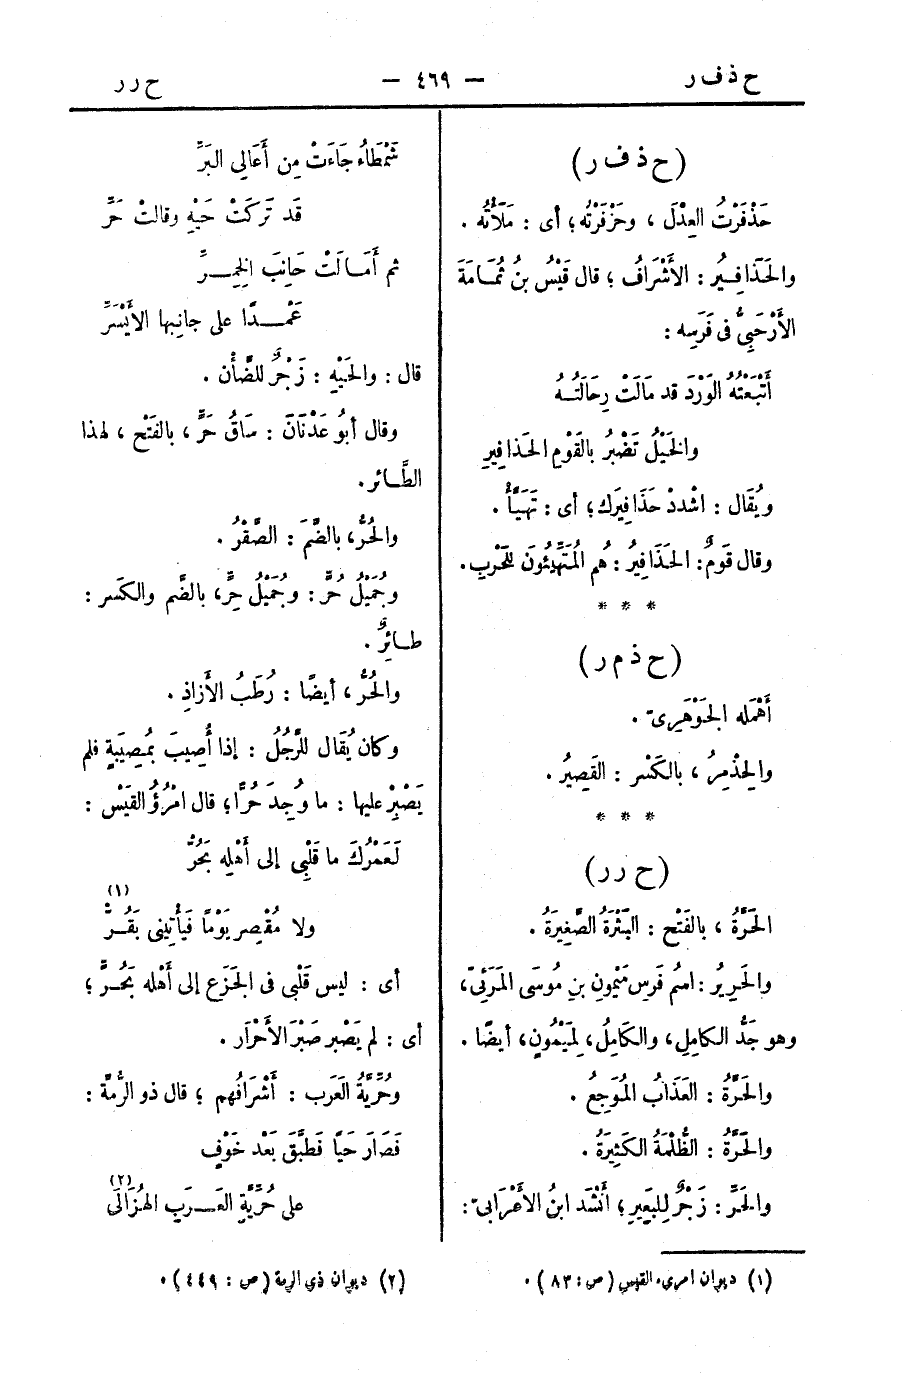 ح ذ ف ر
— ٤٦٩ —
ح ر ر
( ح ذ ف ر )
حَذْفَرْتُ العِدْلَ ، وحَزْفَرْتُه ؛ أى : مَلَأْتُه .
والحَذَافِيرُ : الأَشْرَافُ ؛ قال قَيْسُ بنُ ثُمَامَةَ
الأَرْحَبِىُّ فى فَرَسِه :
أَتْبَعْتُهُ الوَرْدَ قد مَالَتْ رِحَالَتُهُ
والخَيْلُ تَضْبُرُ بالقَوْمِ الحَذافِيرِ
ويُقَال : اشْددْ حَذَافِيرَك ؛ أى : تَهَيَّأْ .
وقال قَومٌ : الحَذَافِيرُ : هُم المُتَهَيِّئُونَ للحَرْبِ .
* * *
( ح ذ م ر )
أَهْمَله الجَوْهَرِىّ .
والحِذْمِرُ ، بالكَسْر : القَصِيرُ .
* * *
( ح ر ر )
الحَرَّةُ ، بالفَتْح : البَثْرَةُ الصَّغِيرَةُ .
والحَرِيرُ : اسمُ فَرَس مَيْمُونِ بنِ مُوسَى المَرَئِىّ ،
وهو جَدُّ الكامِلِ ، والكَامِلُ ، لِمَيْمُونٍ ، أيضًا .
والحَرَّةُ : العَذَابُ المُوَجِعُ .
والحَرَّةُ : الظُّلْمَةُ الكَثِيرَةُ .
والحَرّ : زَجْرٌ لِلبَعِيرِ ؛ أنْشَد ابنُ الأعْرَابىّ :
شَمْطَاءُ جَاءَتْ مِن أَعَالِى البَرِّ
قَد تَرَكَتْ حَيْهِ وقالتْ حَرِّ
ثم أَمَالَتْ جَانِبَ الخِمِرِّ
عَمْدًا على جانِبِها الأَيْسَرِّ
قال : والحَيْهِ : زَجْرٌ للضَّأْن .
وقال أبُو عَدْنَانَ : سَاقُ حَرٍّ ، بالفَتْح ، لهذا
الطَّائر .
والحُرُّ ، بالضَّمّ : الصَّقْرُ .
وجُمَيْلُ حُرٍّ : وجُمَيْلُ حِرٍّ ، بالضَّم والكَسر :
طائِرٌ .
والحُرُّ ، أيضًا : رُطَبُ الأَزَاذِ .
وكان يُقَال للرَّجُلِ : إذا أُصِيبَ بمُصِيبَةٍ فلم
يَصْبِرْ عليها : ما وُجِدَ حُرًّا ؛ قال امْرُؤُ القَيْس :
لَعَمْرُكَ ما قَلْبِى إلى أَهْلِه بحُرّْ
ولا مُقْصِرٍ يَوْمًا فَيَأْتِيَنى بقُرّْ (١)
أى : ليس قَلْبى فى الجَزَع إلى أَهْله بحُرّ ؛
أى : لم يَصْبر صَبْرَ الأَحْرَار .
وحُرِّيَّةُ العَرَب : أَشْرَافُهم ؛ قال ذو الرُّمَّة :
فَصَارَ حَيًا فَطَبَّقَ بَعْدَ خَوْفٍ
على حُرِّيَّةِ العَرَبِ الهُزَالَى (٢)
(١) ديوان امرىء القيس ( ص : ٨٣ ) .
(٢) ديوان ذي الرمة ( ص : ٤٤٩ ) .